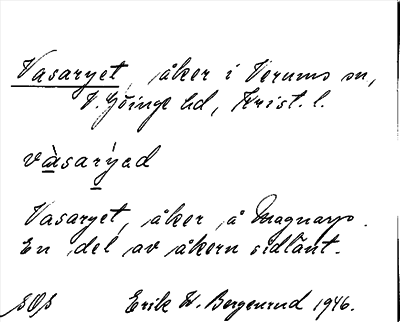 Vasaryet, åker i Verums sn,
V. Göinge hd, Krist. l.
vàsarýed
Vasaryet, åker å Magnarp.
En del av åkern sidlänt.
Erik W. Bergenrud 1946.